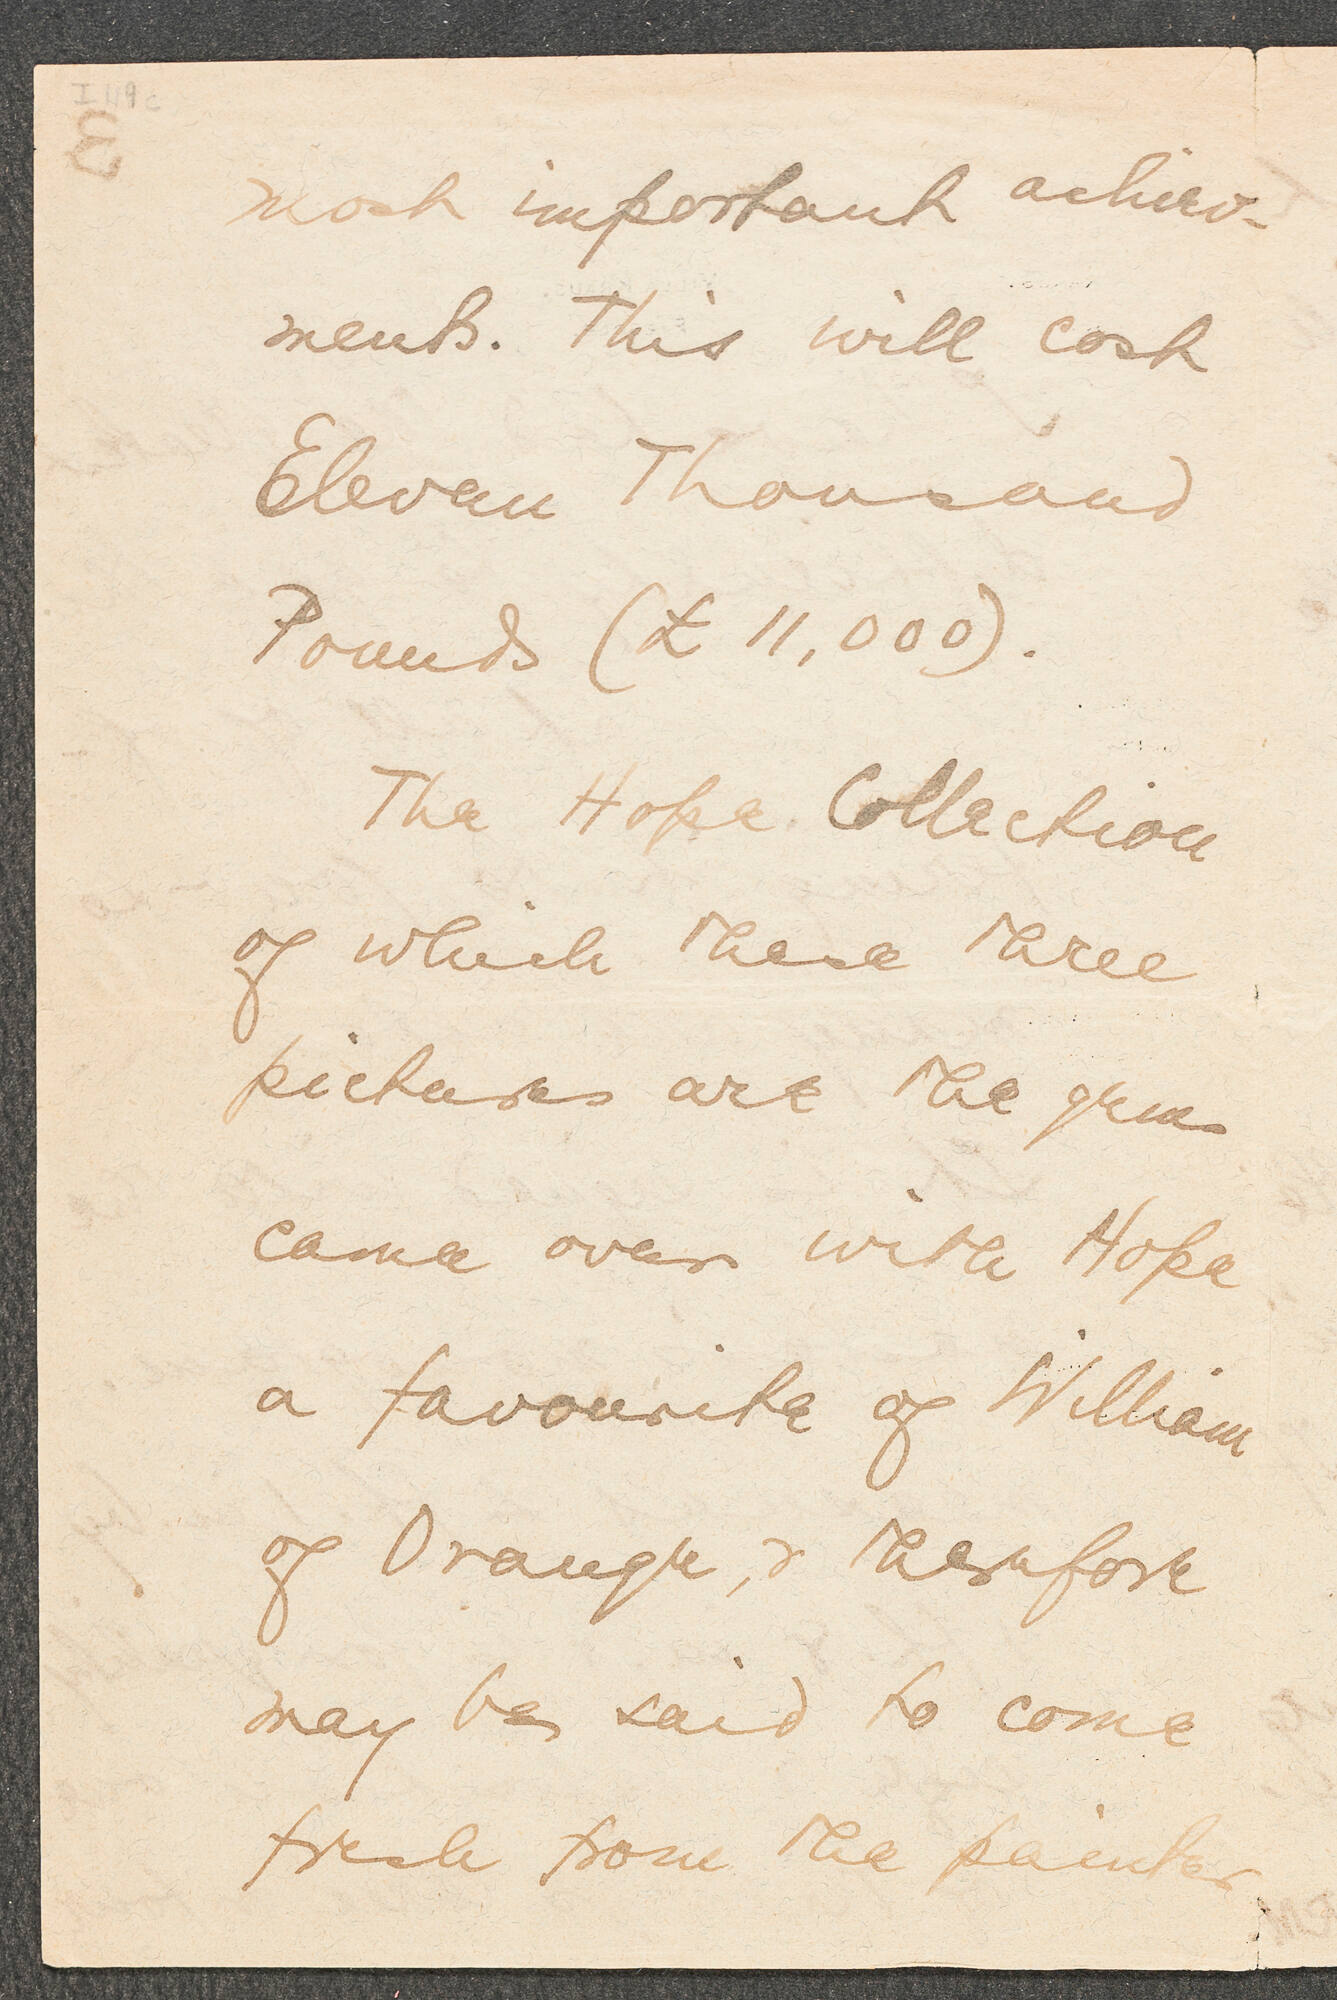 I 119 c
3
most important achiev-
ments. This will cost
Eleven Thousand
Pounds (£ 11,000).
The Hope Collection
of which these three
pictures are the gems
came over with Hope
a favourite of William
of Orange, & therefore
may be said to come
fresh from the painter